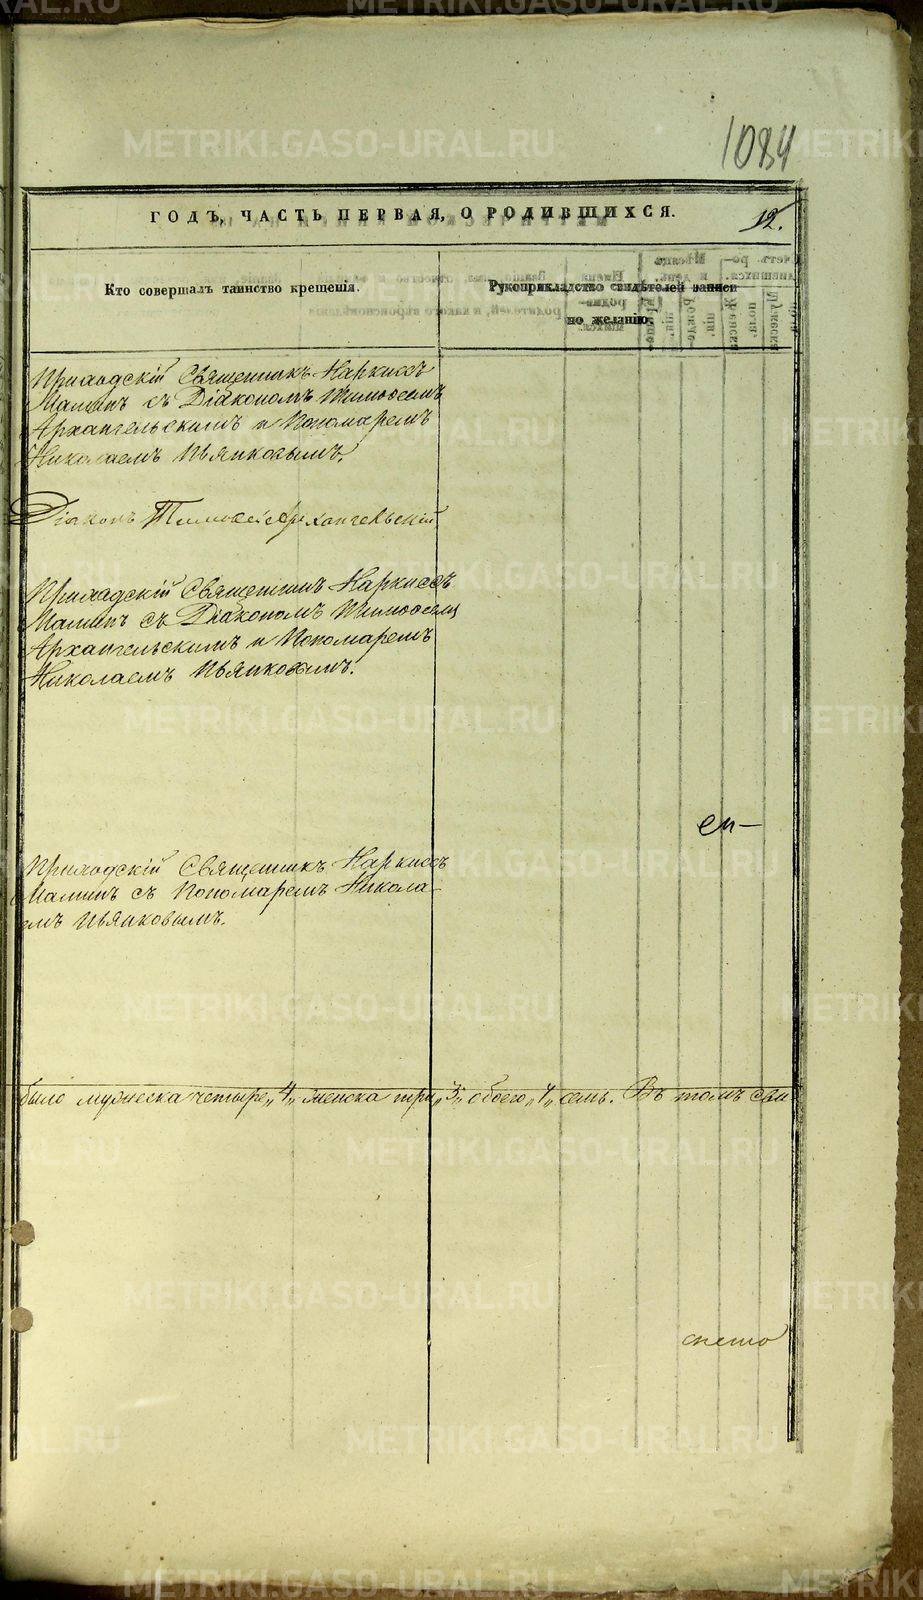 1084
ГОДЪ, ЧАСТЬ ПЕРВАЯ, О РОДИВШИХСЯ.
12.
Кто совершалъ таинство крещенія.
Рукоприкладство свидѣтелей записи
по желанію.
Приходскій Священникъ Наркиссъ
Маминъ съ Діакономъ Тимоѳеемъ
Архангельскимъ и Пономаремъ
Николаемъ Пьянковымъ.
Діаконъ Тимоѳей Архангельскій
Приходскій Священникъ Наркиссъ
Маминъ съ Діакономъ Тимоѳеемъ
Архангельскимъ и Пономаремъ
Николаемъ Пьянковымъ.
Приходскій Священникъ Наркиссъ
Маминъ съ Пономаремъ Никола-
емъ Пьянковымъ.
было мужеска четыре „4„ женска три „3„ обоего „7„ семь. Въ томъ сви
METRIKI.GASO-URAL.RU